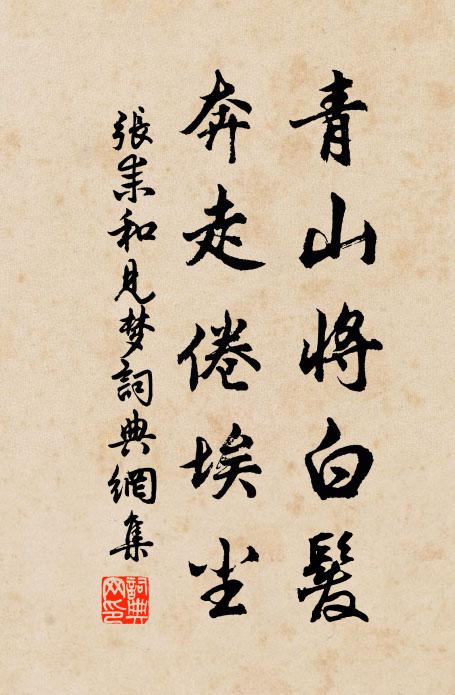 青山將白髮
奔走倦埃尘
張耒和見梦詞典網集
詞典網印